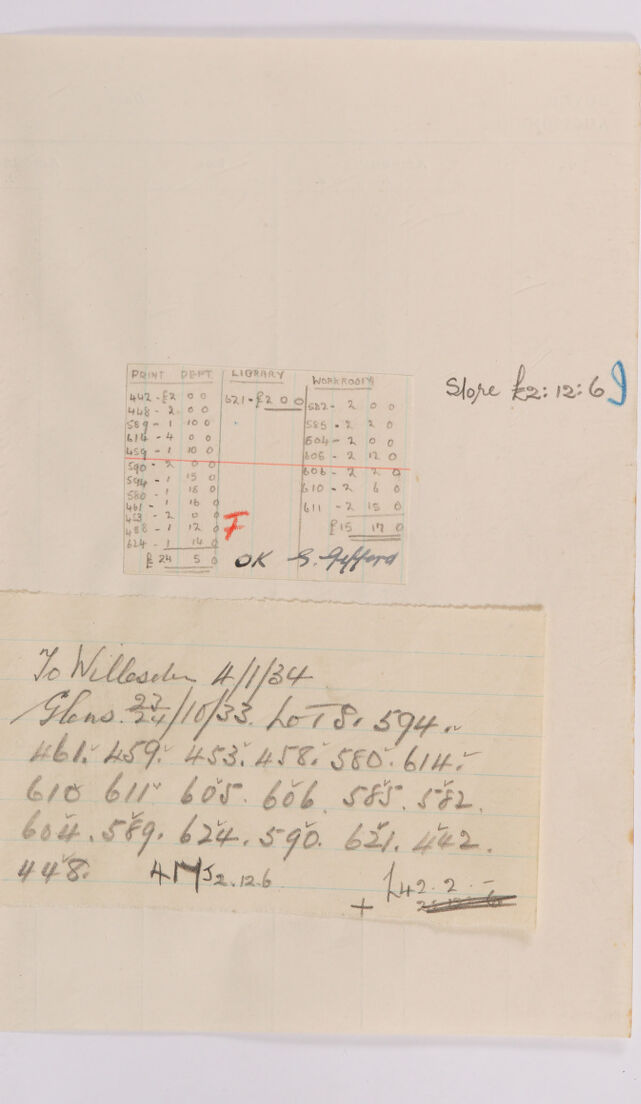 PRINT DEPT
442 - £2 0 0
448 - 2 0 0
589 - 1 10 0
614 - 4 0 0
459 - 1 10 0
590 - 2 0 0
594 - 1 15 0
580 - 1 18 0
461 - 1 16 0
453 - 2 0 0
458 - 1 12 0
624 - 1 14 0
£24 5 0
LIBRARY
621 - £2 0 0
WORKROOM
582 - 2 0 0
585 - 2 2 0
604 - 2 0 0
605 - 2 12 0
606 - 2 2 0
610 - 2 6 0
611 - 2 15 0
£15 17 0
F
OK G. Gifford
Store £2:12:6
To Willesden 4/1/34
Glens. 23/24/10/33. LOTS. 594.
461. 459. 453. 458. 580. 614.
610 611 605. 606. 585. 582.
604. 589. 624. 590. 621. 442.
448. 2.12.6
+ £42.2.-